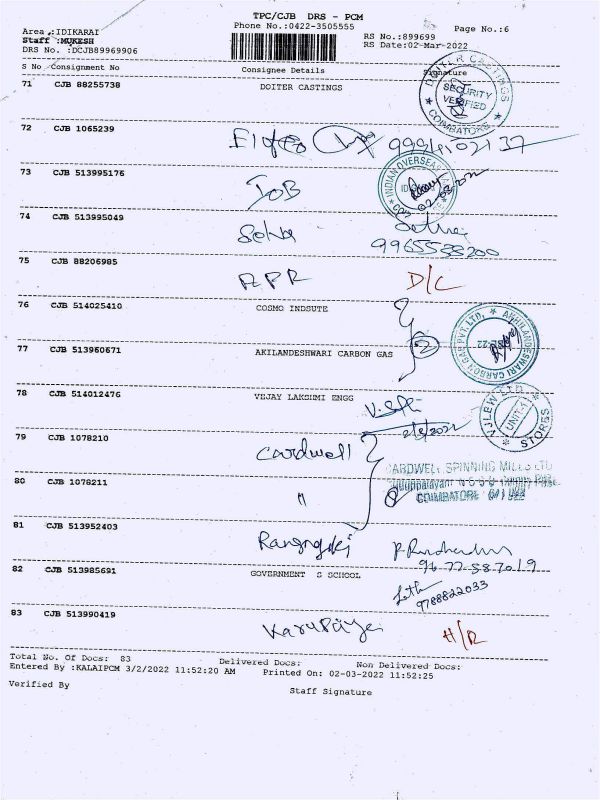 TPC/CJB DRS - PCM
Phone No.:0422-3505555
Page No.:6
Area :IDIKARAI
Staff :MUKESH
DRS No. :DCJB89969906
RS No.:899699
RS Date:02-Mar-2022
S No Consignment No Consignee Details Signature
71 CJB 88255738 DOITER CASTINGS
SECURITY VERIFIED
COIMBATORE
72 CJB 1065239
73 CJB 513995176 IOB
INDIAN OVERSEAS
74 CJB 513995049
9965588200
75 CJB 88206985 APR D/C
76 CJB 514025410 COSMO INDSUTE
77 CJB 513960671 AKILANDESHWARI CARBON GAS
2
AKHILANDESWARI CARBON GAS PVT. LTD.
78 CJB 514012476 VIJAY LAKSHMI ENGG
UNIT-1
STORES
79 CJB 1078210 Cardwell
CARDWELL SPINNING MILLS LTD
80 CJB 1078211 "
COIMBATORE
81 CJB 513952403
82 CJB 513985691 GOVERNMENT S SCHOOL
9788822033
83 CJB 513990419 H/R
Total No. Of Docs: 83 Delivered Docs: Non Delivered Docs:
Entered By :KALAIPCM 3/2/2022 11:52:20 AM Printed On: 02-03-2022 11:52:25
Verified By Staff Signature